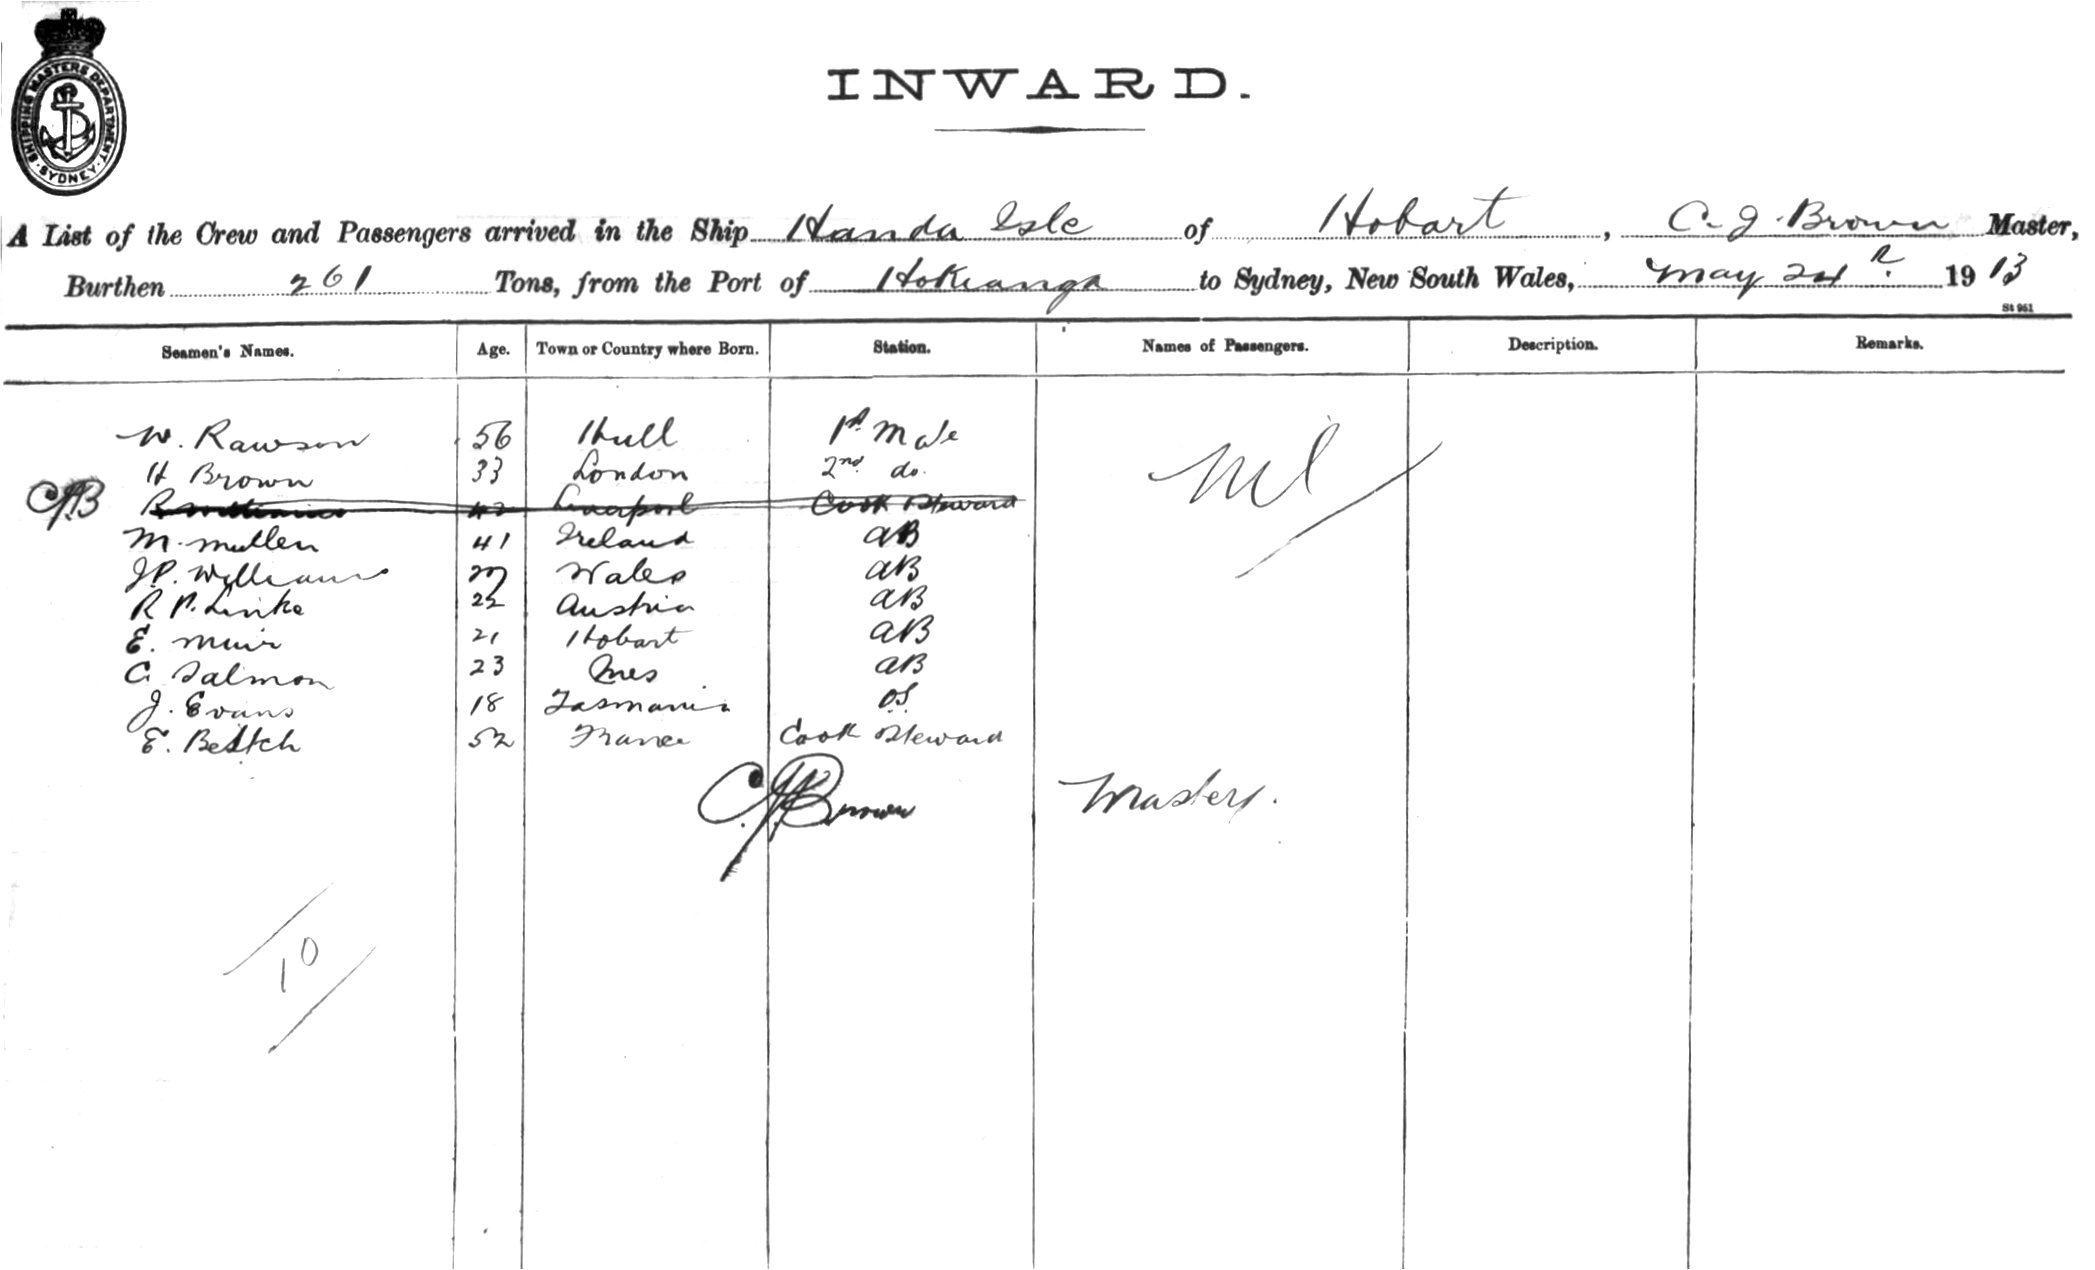 SHIPPING MASTERS DEPARTMENT. SYDNEY.
INWARD.
A List of the Crew and Passengers arrived in the Ship Handa Isle of Hobart, C. J. Brown Master,
Burthen 261 Tons, from the Port of Hokianga to Sydney, New South Wales, May 24th 1913
St 961
Seamen's Names. Age. Town or Country where Born. Station. Names of Passengers. Description. Remarks.
W. Rawson 56 Hull 1st Mate Nil
H Brown 33 London 2nd do.
CJB R Williams 42 Liverpool Cook Steward
M. Mullen 41 Ireland AB
J.P. Williams Wales AB
R P. Linke 22 Austria AB
E. Muir 21 Hobart AB
C. Salmon 23 AB
J. Evans 18 Tasmania OS
E. 52 France Cook Steward
CJBrown Master.
10